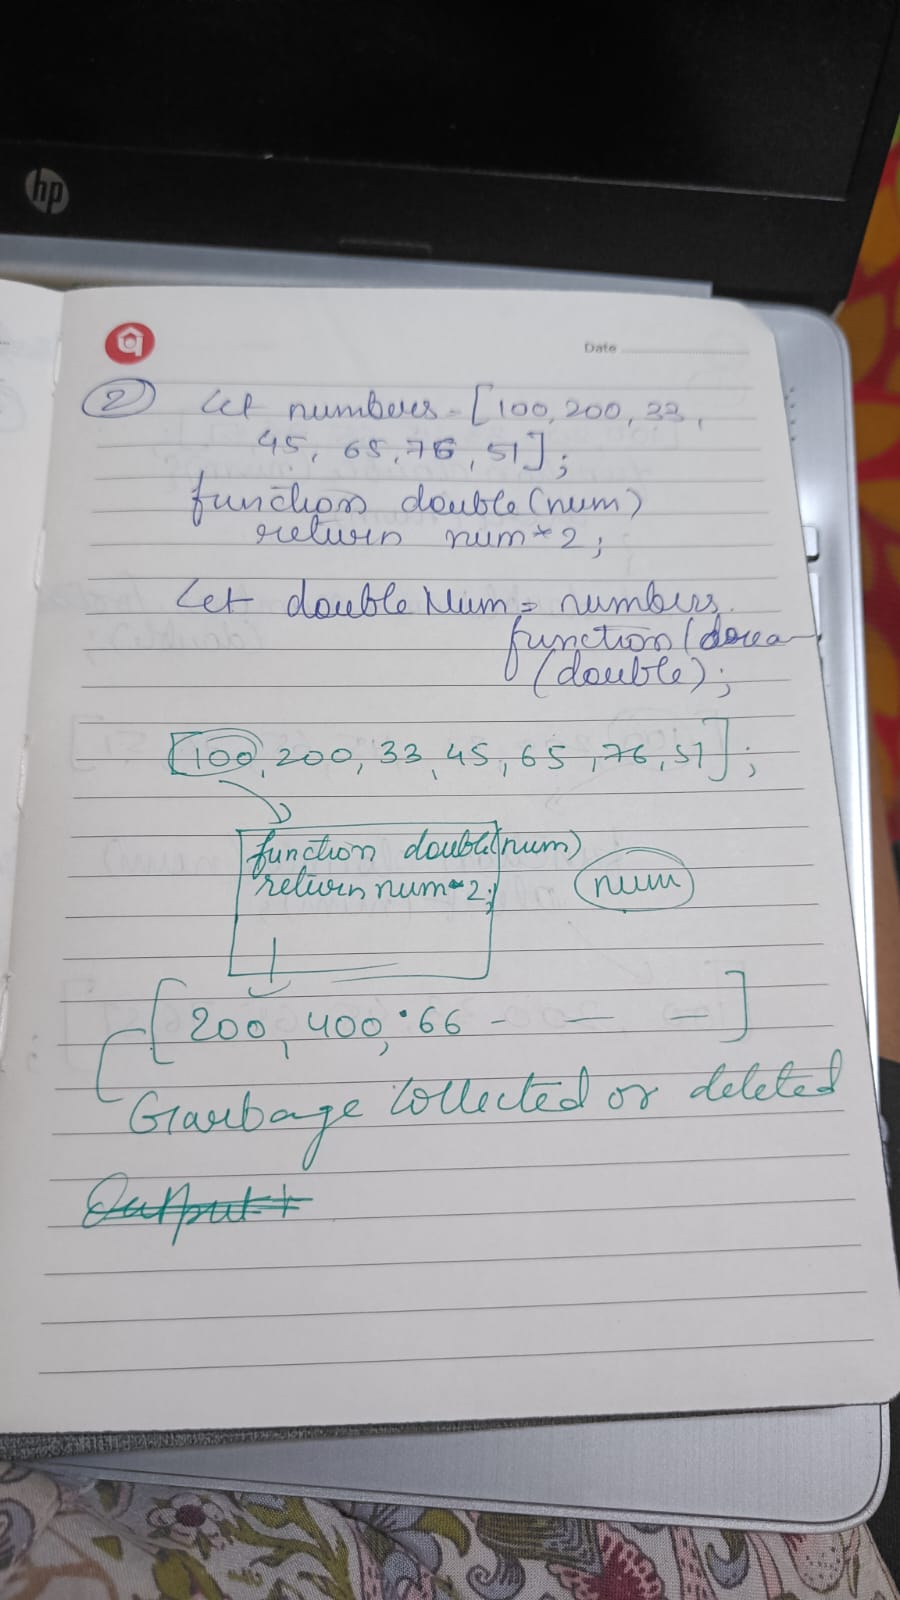 hp
Date
2 Let numbers = [100, 200, 33,
45, 65, 76, 51];
function double(num)
return num*2;
Let doubleNum = numbers.
function(
(double);
[100, 200, 33, 45, 65, 76, 51];
function double(num)
return num*2;
num
[200, 400, 66 - - -]
Garbage Collected or deleted
Output